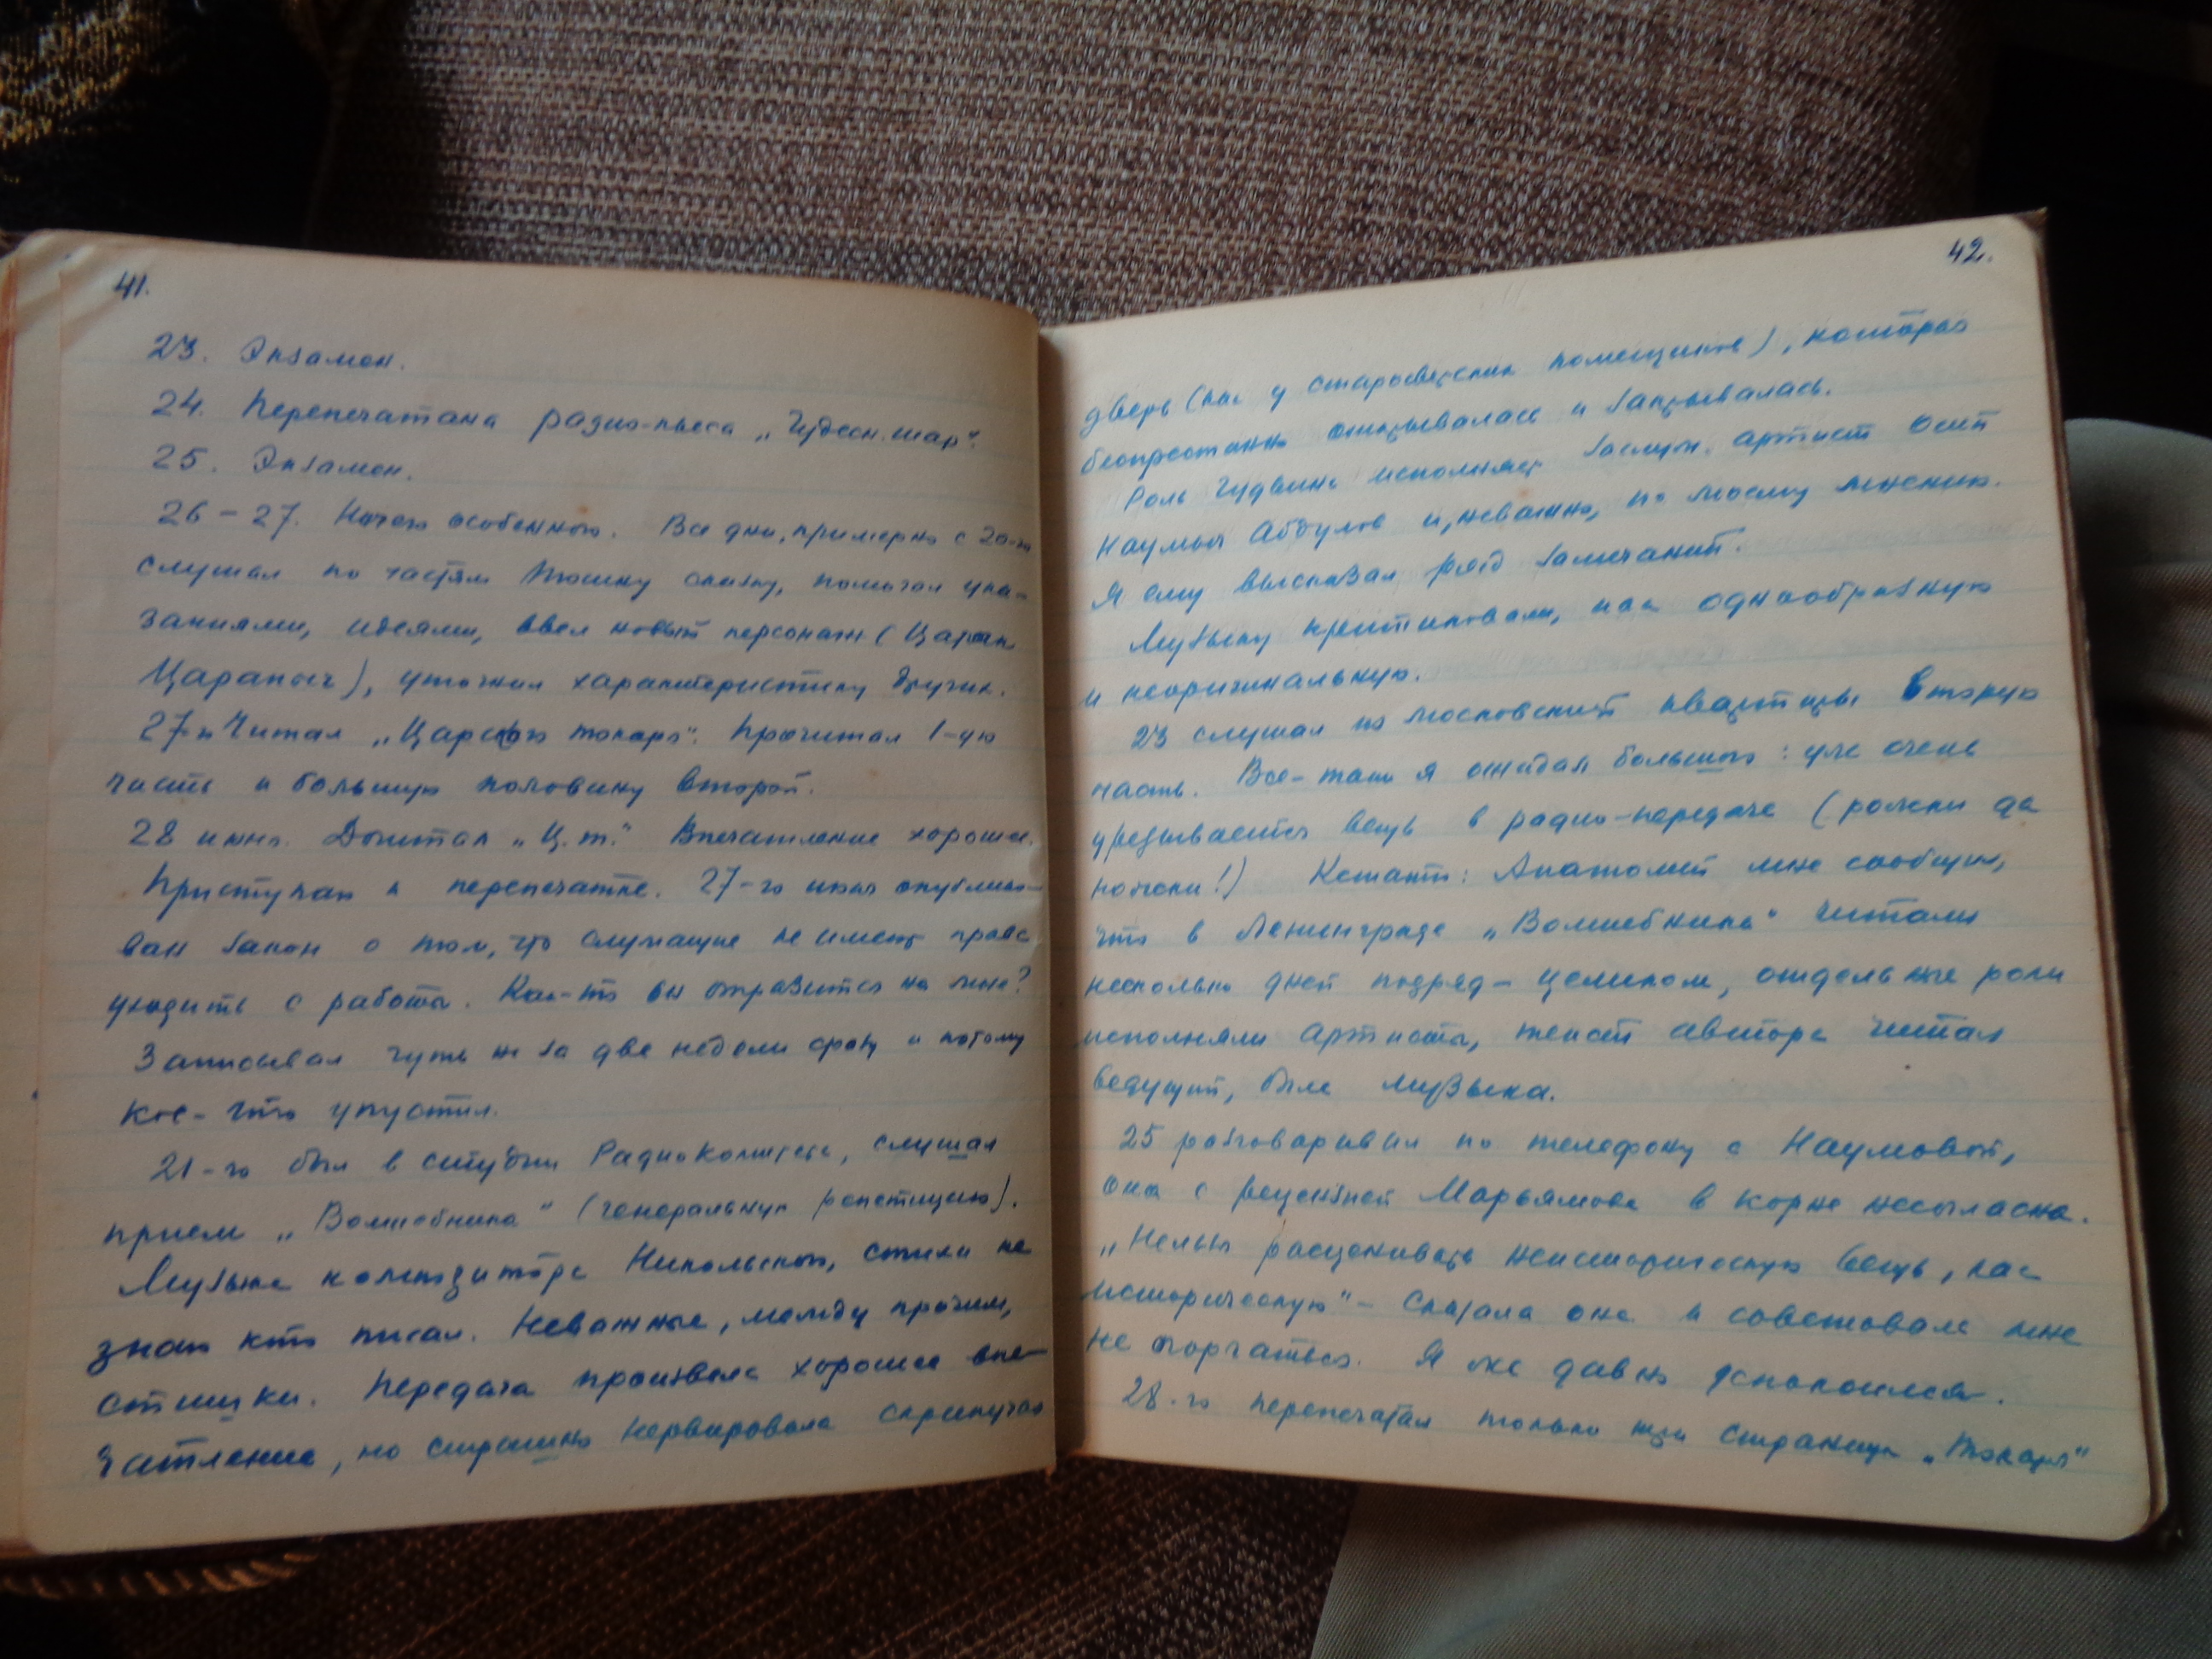 41.
23. Экзамен.
24. Перепечатана радио-пьеса „Чудесн. шар“.
25. Экзамен.
26–27. Ничего особенного. Все дни, примерно с 20-го
слушал по частям Тюшину сказку, помогал ука-
заниями, идеями, ввел новый персонаж (Царап
Царапыч), уточнил характеристику других.
27-го Читал „Царского токаря“. Прочитал 1-ую
часть и большую половину второй.
28 июня. Дочитал „Ц.т.“ Впечатление хорошее.
Приступаю к перепечатке. 27-го июня опублико-
ван закон о том, что служащие не имеют права
уходить с работы. Как-то он отразится на мне?
Записывал чуть не за две недели сразу и потому
кое-что упустил.
21-го был в студии Радиокомитета, слушал
прием „Волшебника“ (генеральную репетицию).
Музыка композитора Никольского, стихи не
знаю кто писал. Неважные, между прочим,
стишки. Передача произвела хорошее впе-
чатление, но страшно нервировала скрипучая
42.
дверь (как у старосветских помещиков), которая
беспрестанно открывалась и закрывалась.
Роль Гудвина исполняет заслуж. артист Осип
Наумыч Абдулов и, неважно, по моему мнению.
Я ему высказал ряд замечаний.
Музыку критиковали, как однообразную
и неоригинальную.
23 слушал из московской квартиры вторую
часть. Все-таки я ожидал большего: уж очень
урезывается вещь в радио-передаче (рожки да
ножки!) Кстати: Анатолий мне сообщил,
что в Ленинграде „Волшебника“ читали
несколько дней подряд – целиком, отдельные роли
исполняли артисты, текст автора читал
ведущий, была музыка.
25 разговаривал по телефону с Наумовой,
она с рецензией Марьямова в корне несогласна.
„Нельзя расценивать неисторическую вещь, как
историческую“ – сказала она и советовала мне
не огорчаться. Я уже давно успокоился.
28-го перепечатал только три страницы „Токаря“